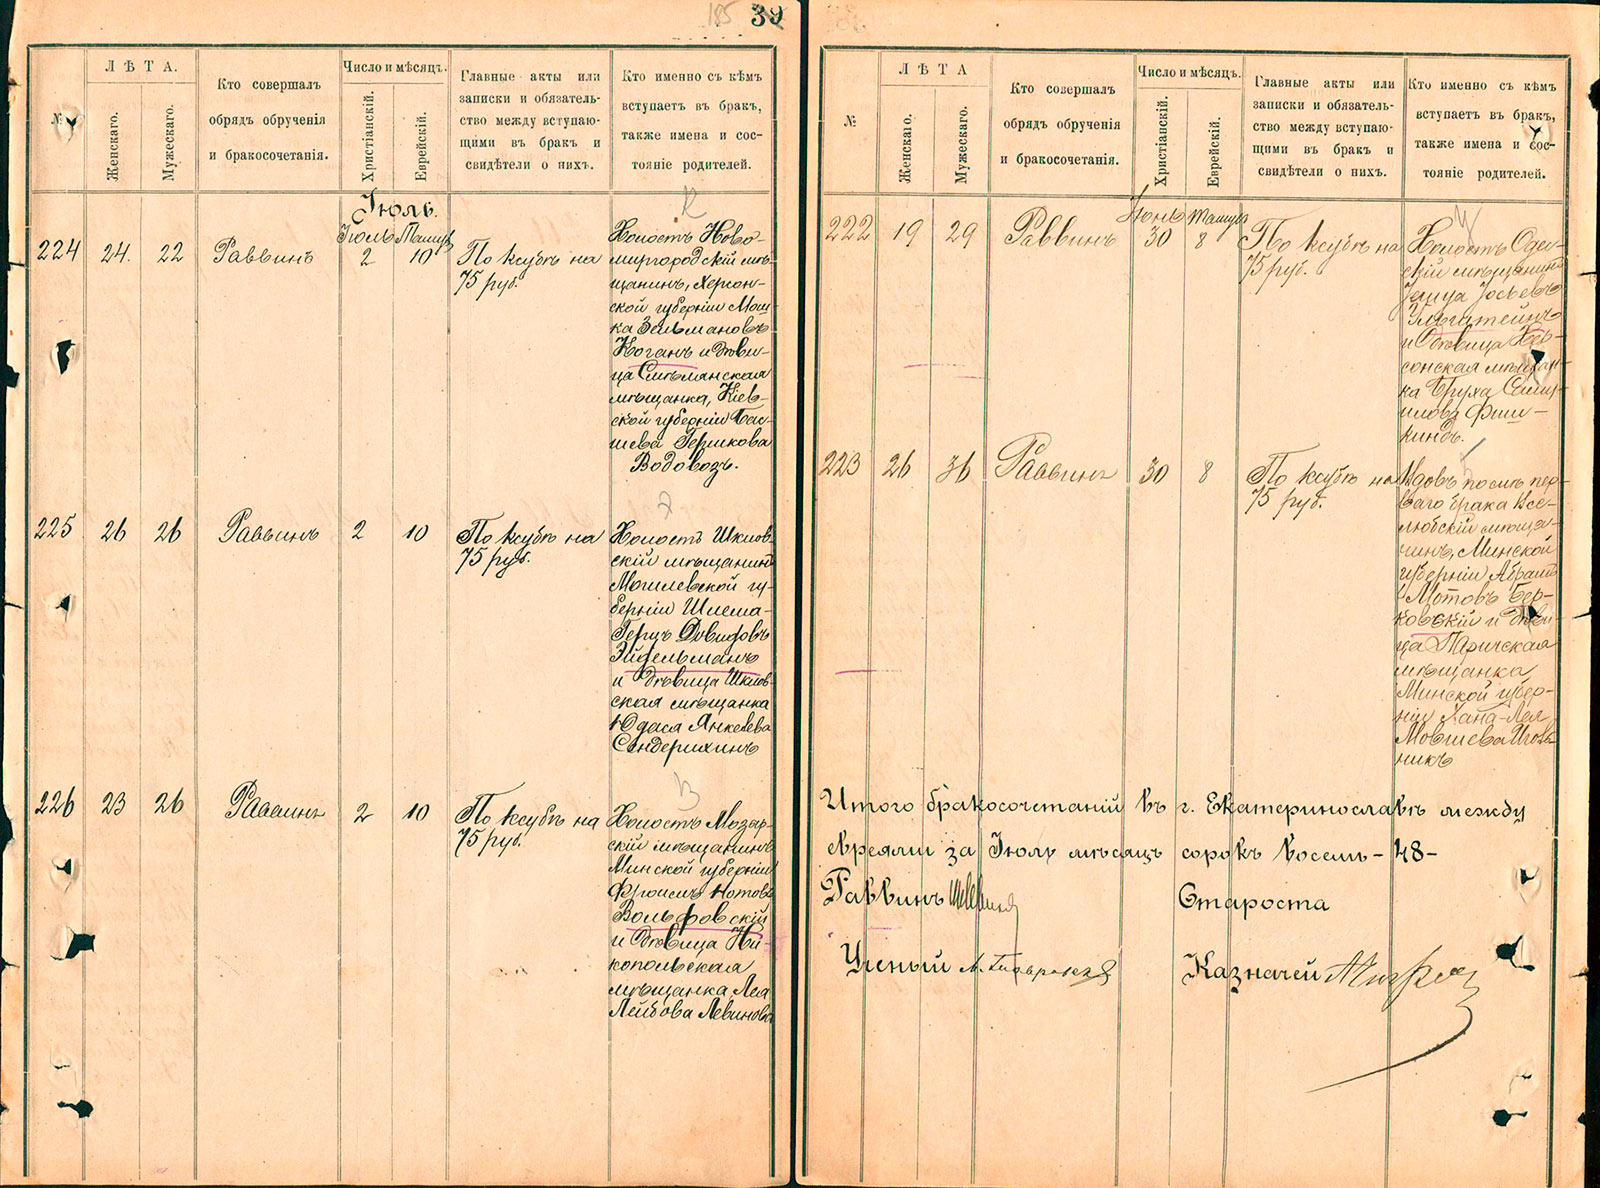 185 39
№
ЛѢТА.
Женскаго.
Мужескаго.
Кто совершалъ
обрядъ обрученія
и бракосочетанія.
Число и мѣсяцъ.
Христіанскій.
Еврейскій.
Главные акты или
записки и обязатель-
ство между вступаю-
щими въ бракъ и
свидѣтели о нихъ.
Кто именно съ кѣмъ
вступаетъ въ бракъ,
также имена и сос-
тояніе родителей.
Іюль.
Іюль
224 24. 22 Раввинъ 2 10
По ксубѣ на
75 руб.
Холостъ Ново-
миргородскій мѣ-
щанинъ, Херсон-
ской губерніи Мош-
ка Зельмановъ
Коганъ и дѣви-
ца Смѣлянская
мѣщанка, Кіев-
ской губерніи Бас-
шева Гершкова
Водовозъ.
225 26 26 Раввинъ 2 10
По ксубѣ на
75 руб.
Холостъ Шклов-
скій мѣщанинъ
Могилевской гу-
берніи Шлема-
Герцъ Довидовъ
Эйдельманъ
и дѣвица Шклов-
ская мѣщанка
Юдася Янкелева
Сендерихинъ
226 23 26 Раввинъ 2 10
По ксубѣ на
75 руб.
Холостъ Мозыр-
скій мѣщанинъ
Минской губерніи
Фроимъ Нотовъ
Вольфовскій
и дѣвица Ни-
копольская
мѣщанка Лея
Лейбова Левинова
№
ЛѢТА
Женскаго.
Мужескаго.
Кто совершалъ
обрядъ обрученія
и бракосочетанія.
Число и мѣсяцъ.
Христіанскій.
Еврейскій.
Главные акты или
записки и обязатель-
ство между вступаю-
щими въ бракъ и
свидѣтели о нихъ.
Кто именно съ кѣмъ
вступаетъ въ бракъ,
также имена и сос-
тояніе родителей.
Іюнь
222 19 29 Раввинъ 30 8
По ксубѣ на
75 руб.
Холостъ Одес-
скій мѣщанинъ
Іосьевъ
и дѣвица Хер-
сонская мѣщан-
ка Бруха Саму-
иловъ Фиш-
кинъ.
223 26 36 Раввинъ 30 8
По ксубѣ на
75 руб.
Вдовъ послѣ пер-
ваго брака Все-
любскій мѣща-
нинъ, Минской
губерніи Абрамъ
Мотовъ Бер-
ковскій и дѣви-
ца Паричская
мѣщанка
Минской губер-
ніи Хана-Лея
Мовшева
никъ
Итого бракосочетаній въ г. Екатеринославѣ между
евреями за Іюль мѣсяцъ сорокъ восемь - 48-
Раввинъ
Староста
Ученый
Казначей